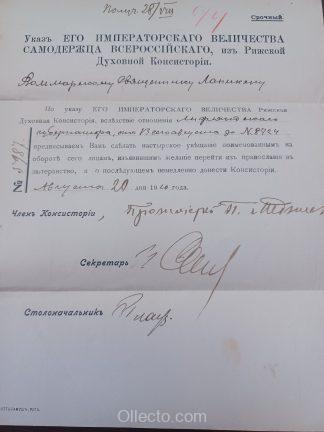 Получ. 28/VIII
Срочный
Указъ ЕГО ИМПЕРАТОРСКАГО ВЕЛИЧЕСТВА
САМОДЕРЖЦА ВСЕРОССІЙСКАГО, изъ Рижской
Духовной Консисторіи.
Священнику
По указу ЕГО ИМПЕРАТОРСКАГО ВЕЛИЧЕСТВА Рижская
Духовная Консисторія, вслѣдствіе отношенія Лифляндскаго
Губернатора, отъ 13 сего августа за № 8424
предписываетъ Вамъ сдѣлать пастырское увѣщаніе поименованнымъ на
оборотѣ сего лицамъ, изъявившимъ желаніе перейти изъ православія въ
лютеранство, и о послѣдующемъ немедленно донести Консисторіи.
Августа 20 дня 1910 года.
№
Членъ Консисторіи Протоіерей П.
Секретарь
Столоначальникъ
Ollecto.com